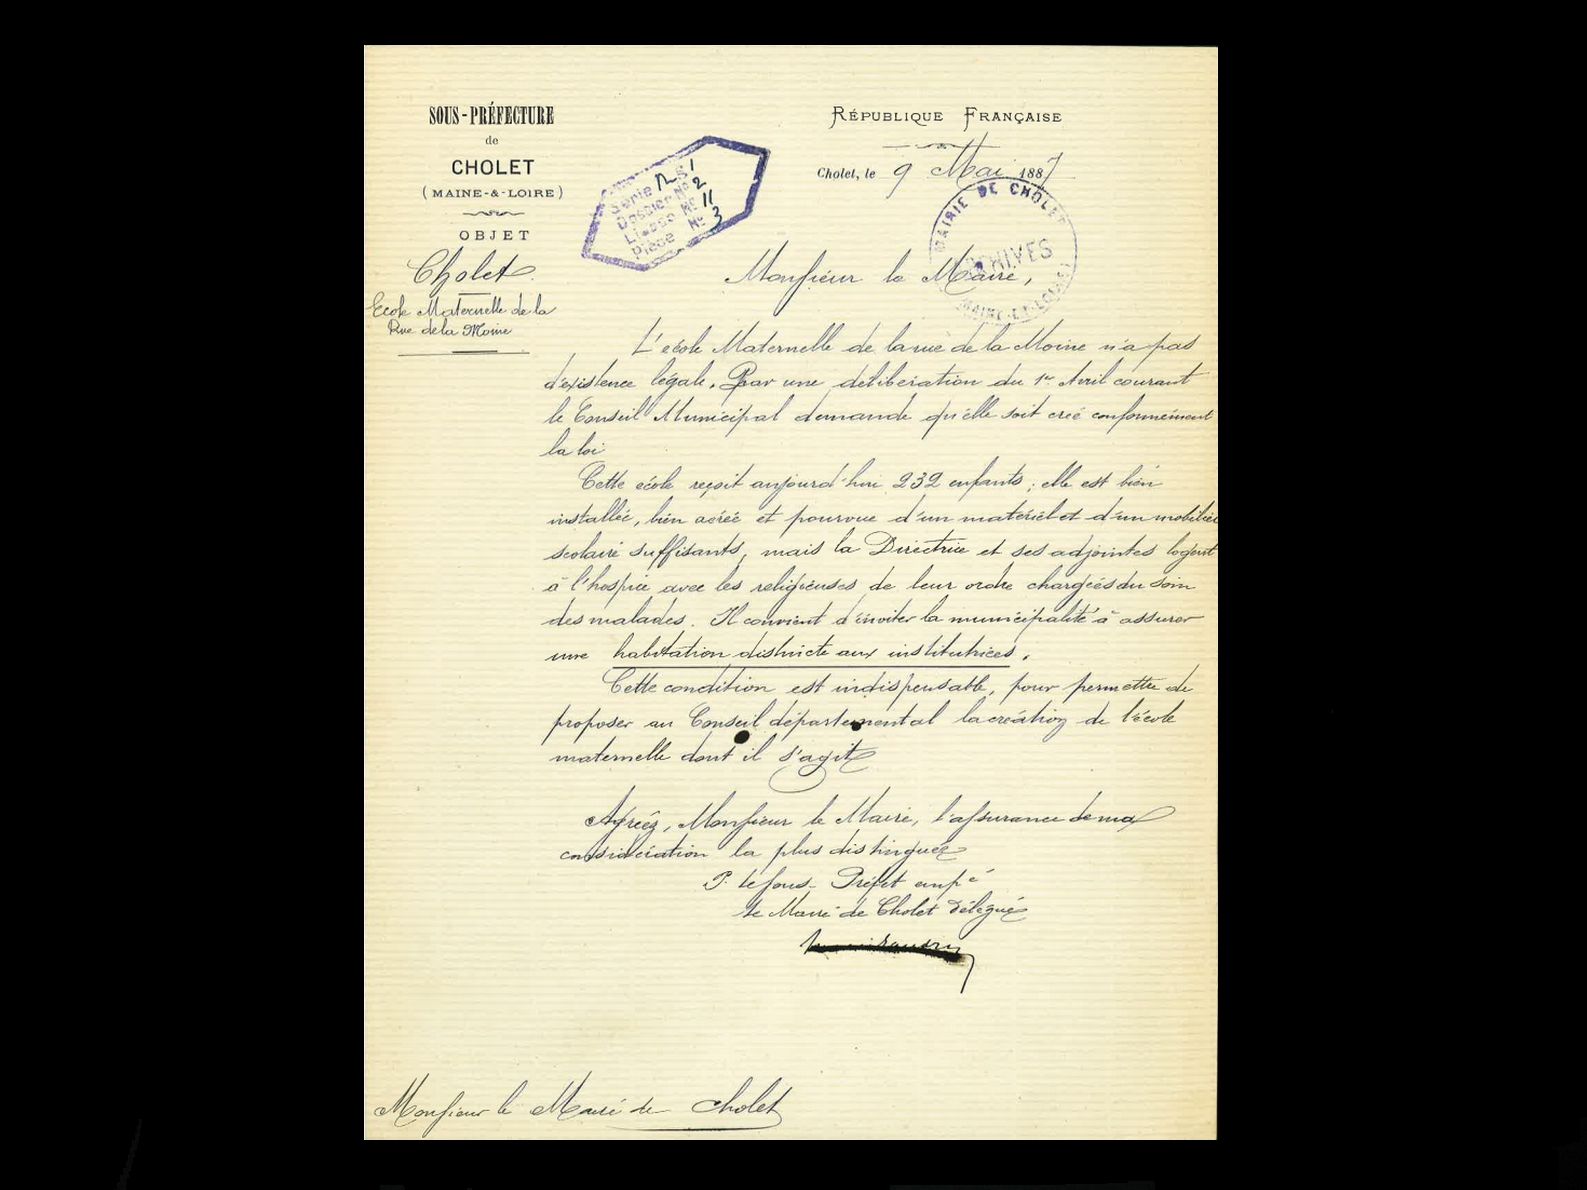 SOUS-PRÉFECTURE
de
CHOLET
(MAINE-&-LOIRE)
OBJET
Cholet
Ecole Maternelle de la
Rue de la Moine
Série S1
Dossier Nº 2
Liasse Nº 11
Pièce Nº 3
RÉPUBLIQUE FRANÇAISE
Cholet, le 9 Mai 1887
MAIRIE DE CHOLET
ARCHIVES
MAINE-ET-LOIRE
Monsieur le Maire,
L'école Maternelle de la rue de la Moine n'a pas
d'existence légale. Par une délibération du 1er Avril courant
le Conseil Municipal demande qu'elle soit créé conformément
la loi
Cette école reçoit aujourd'hui 232 enfants; elle est bien
installée, bien aérée et pourvue d'un matériel et d'un mobilier
scolaire suffisants, mais la Directrice et ses adjointes logent
à l'hospice avec les religieuses de leur ordre chargées du soin
des malades. Il convient d'inviter la municipalité à assurer
une habitation districte aux institutrices.
Cette condition est indispensable, pour permettre de
proposer au Conseil départemental la création de l'école
maternelle dont il s'agit
Agréez, Monsieur le Maire, l'assurance de ma
considération la plus distinguée
P. le Sous-Préfet empé
le Maire de Cholet délégué
Monsieur le Maire de Cholet